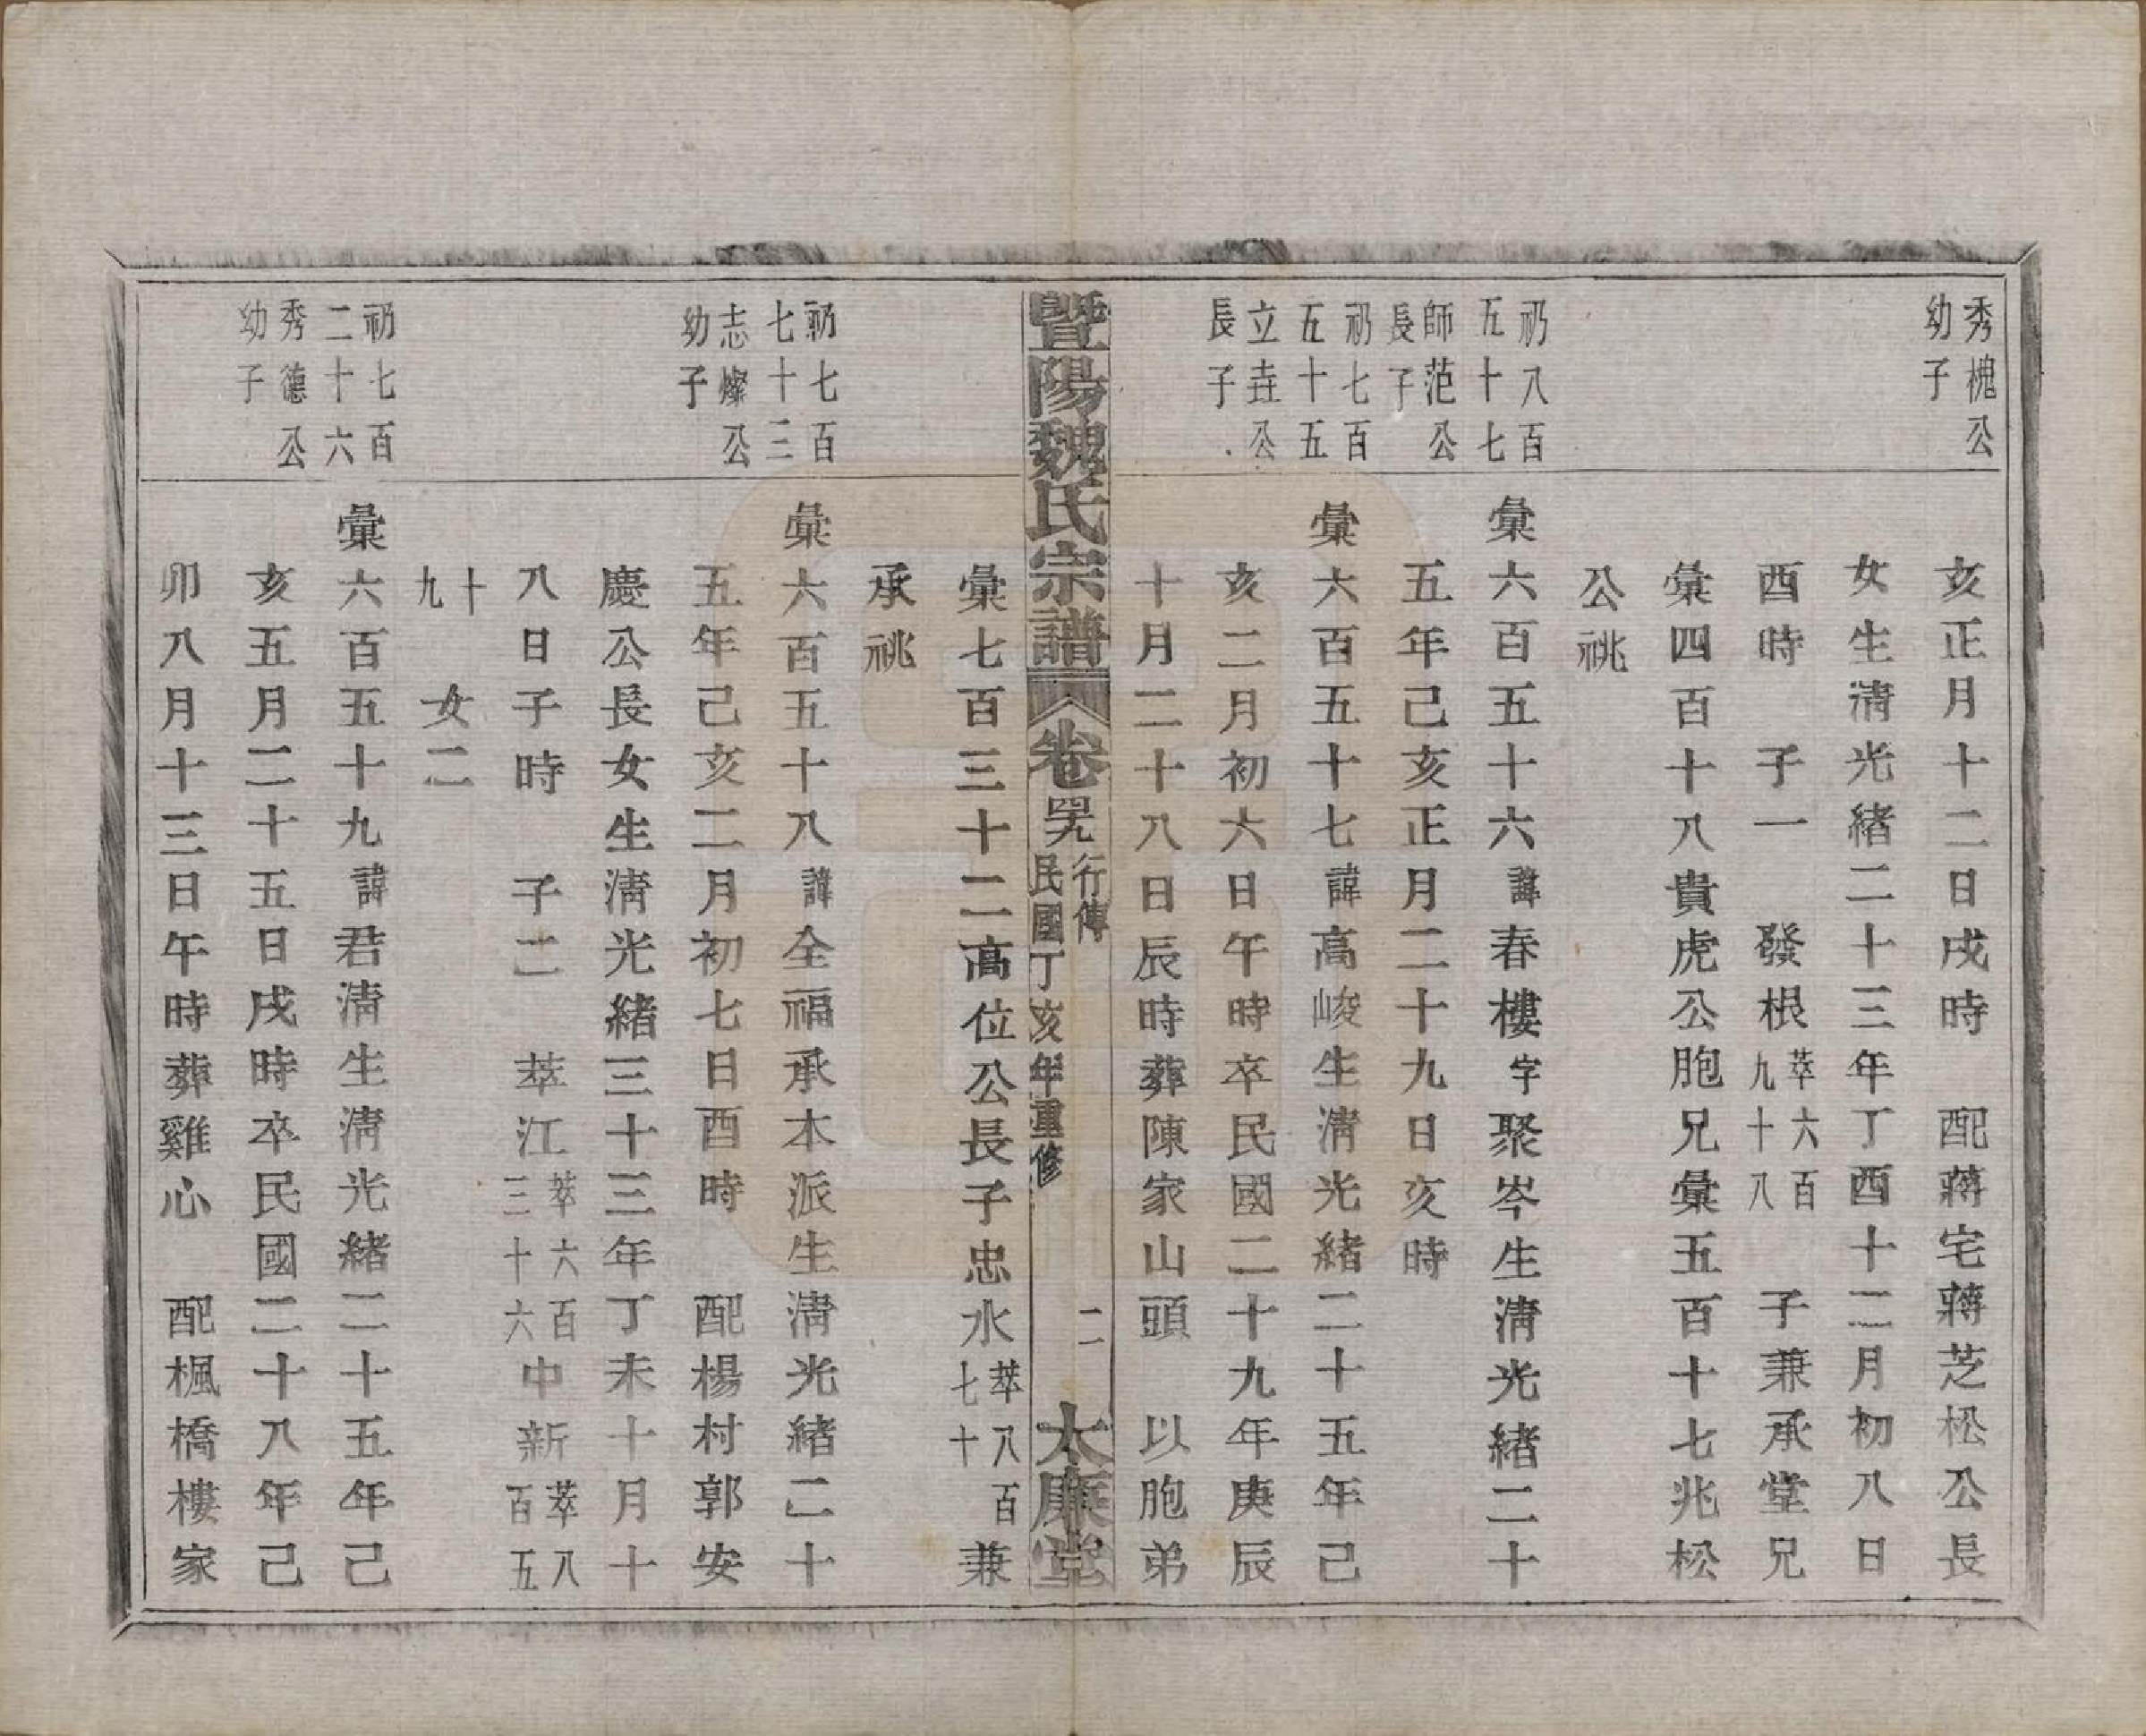 秀槐公
幼子
亥正月十二日戌時　配蔣宅蔣芝松公長
女生淸光緒二十三年丁酉十二月初八日
酉時　子一　發根萃六百九十八　子兼承堂兄
彙四百十八貴虎公胞兄彙五百十七兆松
公祧
礽八百
五十七
師范公
長子
彙六百五十六諱春樓字聚岑生淸光緒二十
五年己亥正月二十九日亥時
礽七百
五十五
立垚公
長子
彙六百五十七諱高峻生淸光緒二十五年己
亥二月初六日午時卒民國二十九年庚辰
十月二十八日辰時葬陳家山頭　以胞弟
暨陽魏氏宗譜　卷㽞九　行傳　民國丁亥年重修　二　太廉堂
彙七百三十二高位公長子忠水萃八百七十兼
承祧
礽七百
七十三
志燦公
幼子
彙六百五十八諱全福承本派生淸光緒二十
五年己亥二月初七日酉時　配楊村郭安
慶公長女生淸光緒三十三年丁未十月十
八日子時　子二　萃江萃六百三十六中新萃八百五
十九　女二
礽七百
二十六
秀德公
幼子
彙六百五十九諱君淸生淸光緒二十五年己
亥五月二十五日戌時卒民國二十八年己
卯八月十三日午時葬雞心　配楓橋樓家